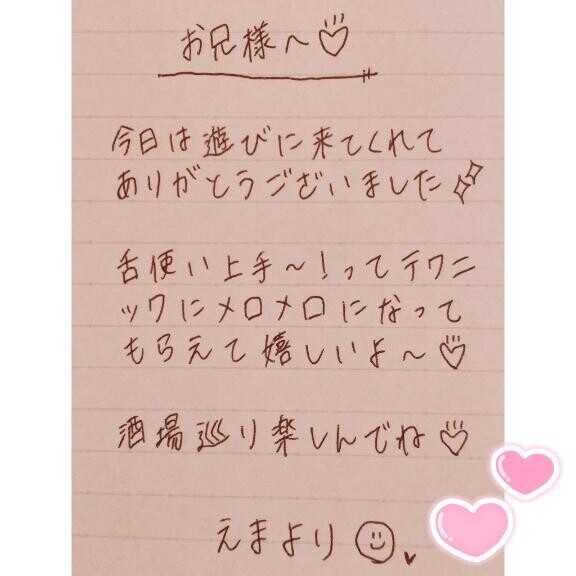 お兄様〜♡
今日は遊びに来てくれて
ありがとうございました
舌使い上手〜！ってテクニ
ックにメロメロになって
もらえて嬉しいよ〜♡
酒場巡り楽しんでね♡
えまより